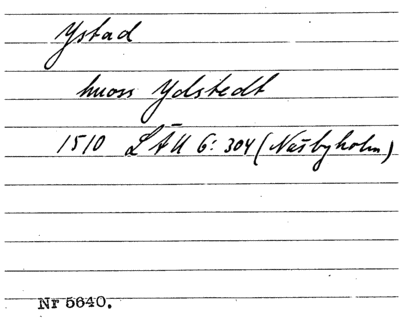 Ystad
huoss Ydstedt
1510 LÄU 6: 304 (Näsbyholm)
Nr 5640.